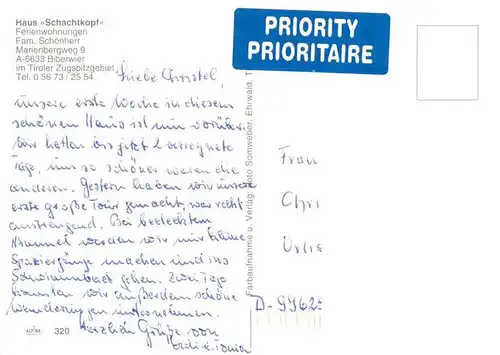 Haus »Schachtkopf«
Ferienwohnungen
Fam. Schönherr
Marienbergweg 9
A-6633 Biberwier
im Tiroler Zugspitzgebiet
Tel. 0 56 73 / 25 54
PRIORITY
PRIORITAIRE
Liebe Christel,
unsere erste Woche in diesem
schönen Haus ist nun vorüber.
Wir hatten bis jetzt 2 verregnete
Tage, um so schöner waren die
anderen. Gestern haben wir unsere
erste große Tour gemacht, war recht
anstrengend. Bei bedecktem
Himmel werden wir nur kleine
Spaziergänge machen und ins
Schwimmbad gehen. Zwei Tage
konnten wir außerdem schöne
Wanderungen unternehmen.
Herzliche Grüße von
Tonia
Farbaufnahme u. Verlag: Foto Somweber, Ehrwald, T
Frau
Chri
D-99625
ALPINA 320